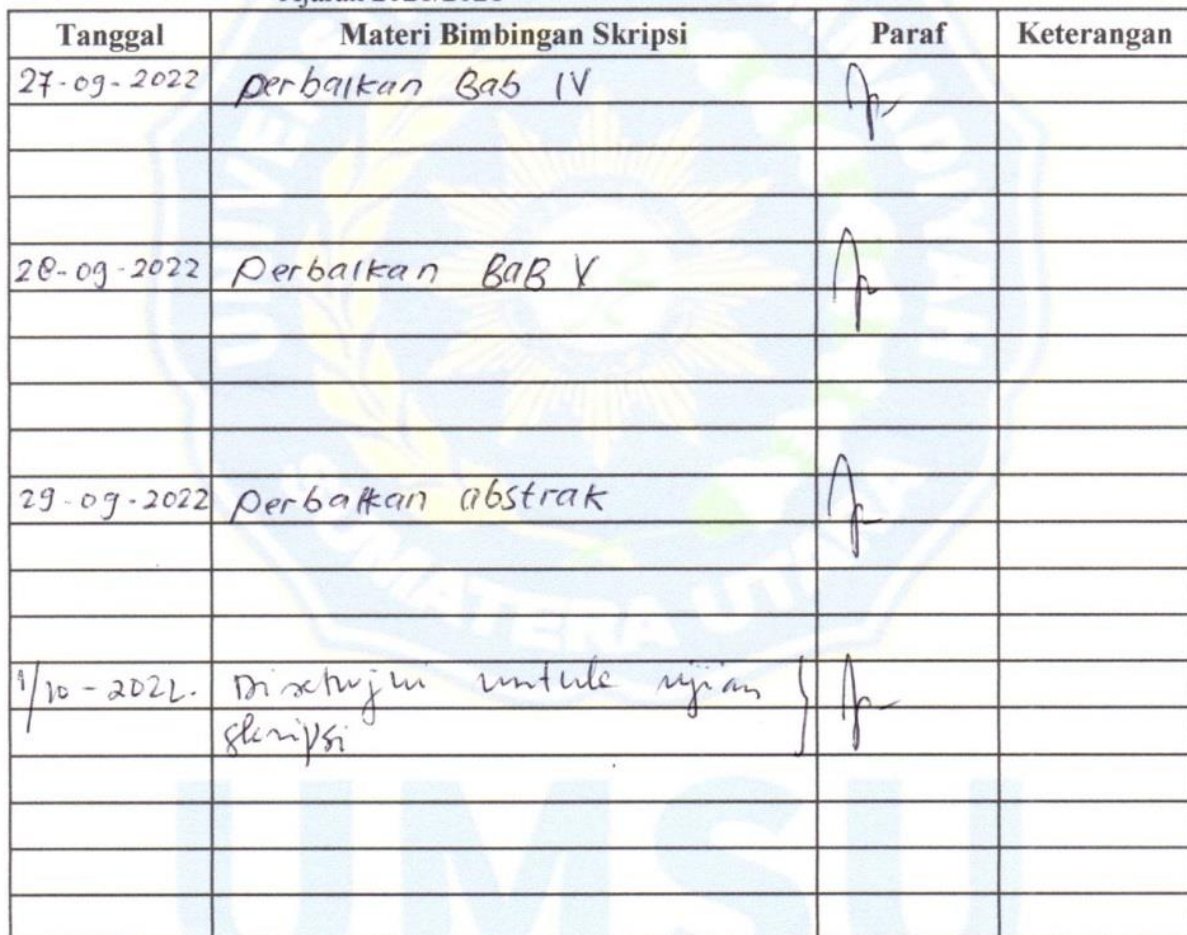 Tanggal Materi Bimbingan Skripsi Paraf Keterangan
27-09-2022 perbaikan Bab IV
28-09-2022 Perbaikan BaB V
29-09-2022 perbaikan abstrak
1/10-2022. Disetujui untuk ujian
skripsi
UNIVERSITAS MUHAMMADIYAH
SUMATERA UTARA
UMSU